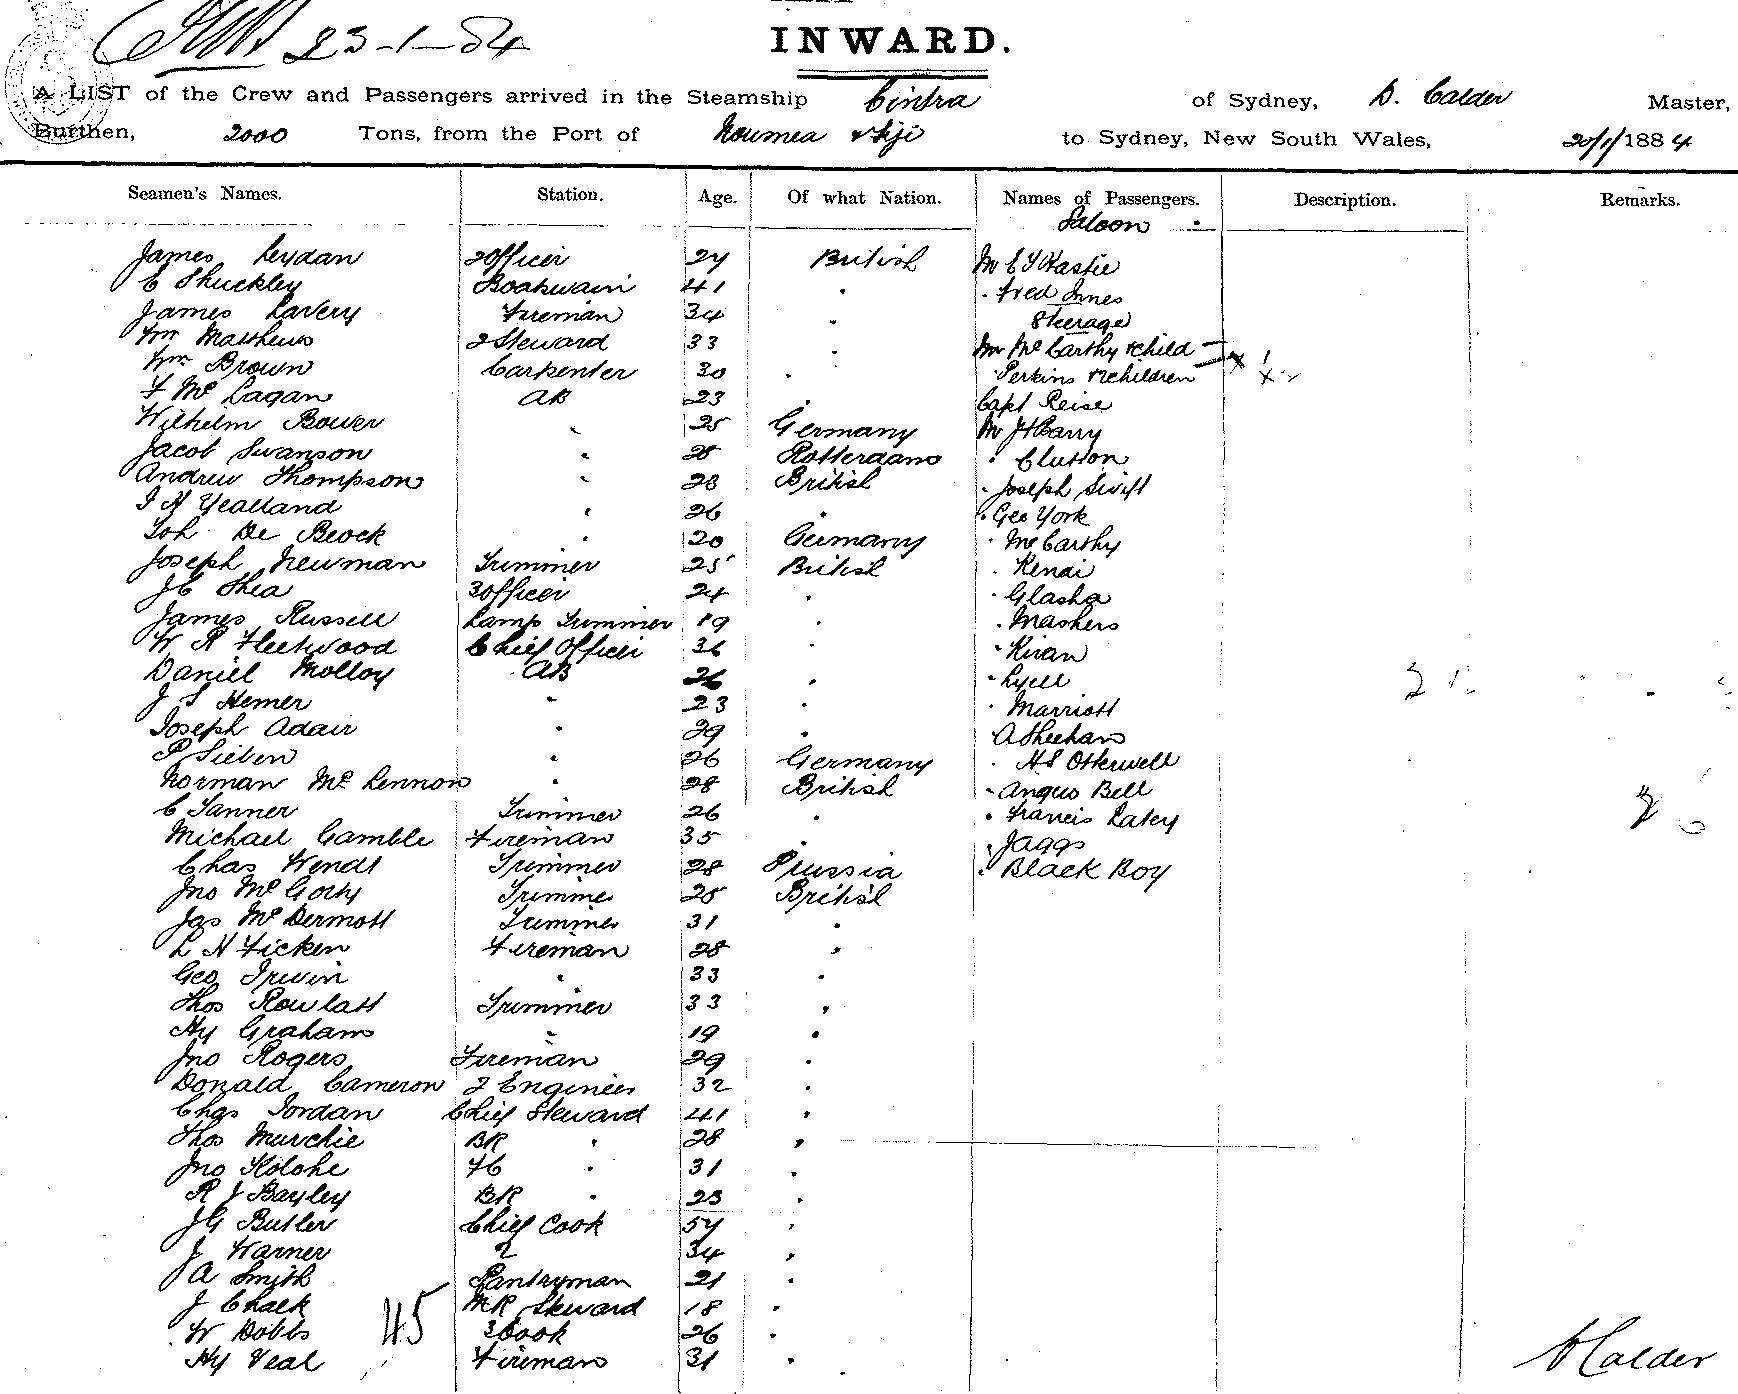 23-1-84
INWARD.
A LIST of the Crew and Passengers arrived in the Steamship Cintra of Sydney, D. Calder Master,
Burthen, 2000 Tons, from the Port of Noumea & Fiji to Sydney, New South Wales, 20/1/1884
Seamen's Names. Station. Age. Of what Nation. Names of Passengers. Description. Remarks.
Saloon
James Leydan 2 Officer 27 British Mr E J Hastie
C Shuckley Boatswain 41 " " Fred Innes
James Lavery Fireman 34 " Steerage
Wm Matthews 2 Steward 33 " Mr McCarthy & child
Wm Brown Carpenter 30 " Perkins & 2 children
F McLagan AB 23 " Capt Reise
Wilhelm Bower " 25 Germany Mr J H Barry
Jacob Swanson " 25 Rotterdam " Clutton
Andrew Thompson " 23 British " Joseph Swift
I H Yealland " 26 " " Geo York
Joh De Beock " 20 Germany " McCarthy
Joseph Newman Trimmer 25 British " Kenai
J C Shea 3 Officer 24 " " Glasha
James Russell Lamp Trimmer 19 " " Mashers
W R Fleetwood Chief Officer 36 " " Kiran
Daniel Molloy AB 26 " " Lyell
J S Hemer " 23 " " Marriott
Joseph Adair " 29 " A Sheehan
P Sieben " 26 Germany " H S Otterwell
Norman McLennon " 28 British " Angus Bell
C Tanner Trimmer 26 " " Francis Latey
Michael Gamble Fireman 35 " " Jaggs
Chas Wendt Trimmer 28 Prussia " Black Boy
Jno McGoty Trimmer 25 British
Jas McDermott Trimmer 31 "
L H Ficken Fireman 28 "
Geo Irwin " 33 "
Thos Rowlatt Trimmer 33 "
Hy Graham " 19 "
Jno Rogers Fireman 29 "
Donald Cameron 2 Engineer 32 "
Chas Jordan Chief Steward 41 "
Thos Murchie BR " 28 "
Jno Kolohe FC " 31 "
R J Bayley BR " 23 "
J G Butler Chief Cook 57 "
J Warner 2 34 "
A Smith Pantryman 21 "
J Chalk MR Steward 18 "
W Dobbs 3 Cook 26 "
Hy Veal Fireman 31 "
45
D Calder